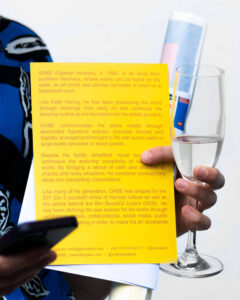 GABE (Gabriel Holzner), b. 1983, is an artist from
southern Germany, whose works can be found on any
walls, as art prints and painted canvases or even on a
basketball court.
Like Keith Haring, he has been processing the world
through drawings from early on and continues this
drawing routine as the foundation for his artistic practice.
GABE communicates his ideas mostly through
abstracted figurative scenes, precisely formed and
digitally arranged and brought to life with acrylic paint on
large-scale canvases or wood panels.
Despite his boldly simplified visual
expresses the enduring complexity of
By bringing a sense of calm and
chaotic and noisy situations, he combines
ideas into compelling compositions.
Like many of his generation, GABE was shaped by the
DIY (Do it yourself) ethos of hip-hop culture as well
as the artists behind the film Beautiful Losers (2008). He
has been defining his own spaces for his works through
collaborators, social media, public
in order to make his art accessible